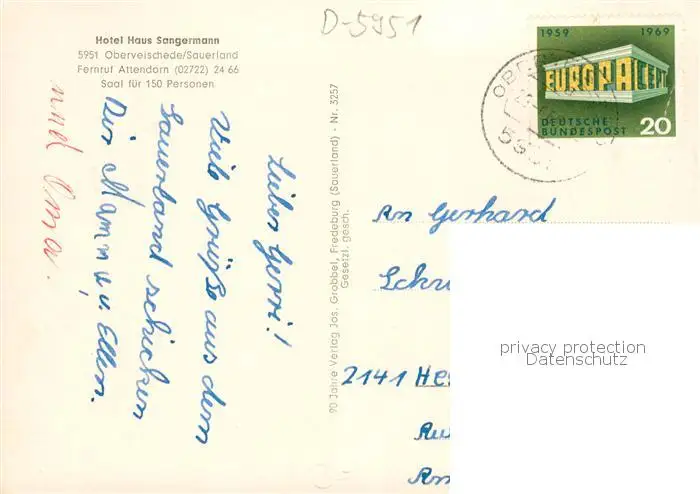 D-5951
Hotel Haus Sangermann
5951 Oberveischede/Sauerland
Fernruf Attendorn (02722) 24 66
Saal für 150 Personen
Lieber Gerri!
Viele Grüße aus dem
Sauerland schicken
Dir Mamma u. Ellen.
und Oma.
90 Jahre Verlag Jos. Grobbel, Fredeburg (Sauerland) - Nr. 3257
Gesetzl. gesch.
1959 1969
EUROPA CEPT
DEUTSCHE
BUNDESPOST 20
An Gerhard
2141
privacy protection
Datenschutz